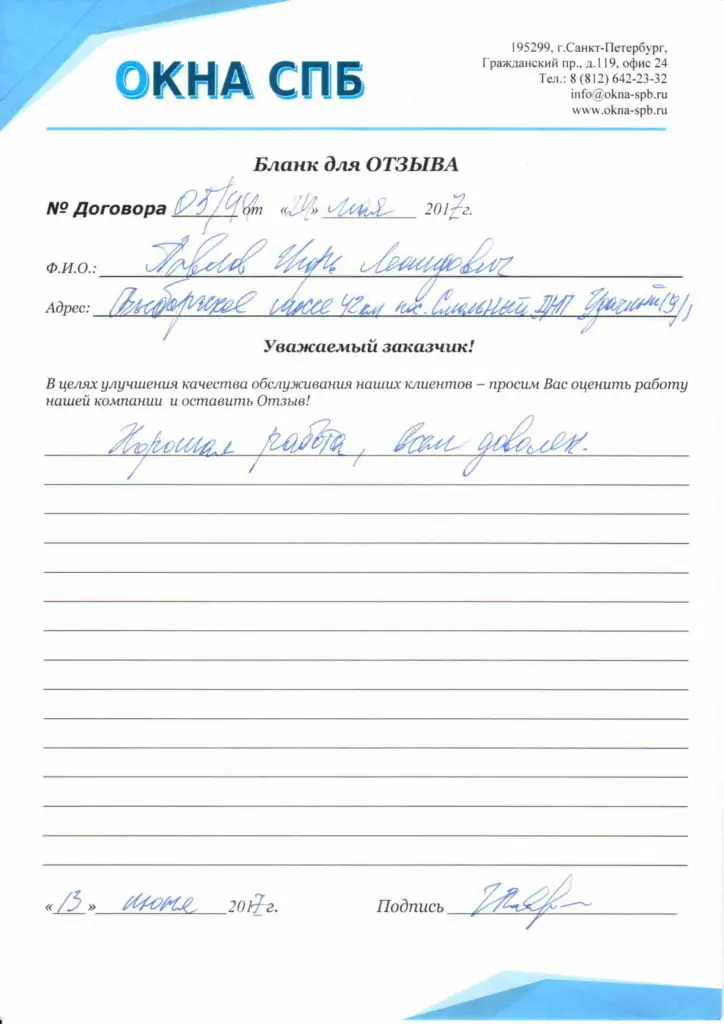 ОКНА СПБ
195299, г.Санкт-Петербург,
Гражданский пр., д.119, офис 24
Тел.: 8 (812) 642-23-32
info@okna-spb.ru
www.okna-spb.ru
Бланк для ОТЗЫВА
№ Договора 05/44 от «24» мая 2017г.
Ф.И.О.: Павлов Игорь Леонидович
Адрес: Выборгское шоссе 42км пос. Смольный ДНП
Уважаемый заказчик!
В целях улучшения качества обслуживания наших клиентов – просим Вас оценить работу
нашей компании и оставить Отзыв!
Хорошая работа, всем доволен.
«13» июня 2017г. Подпись